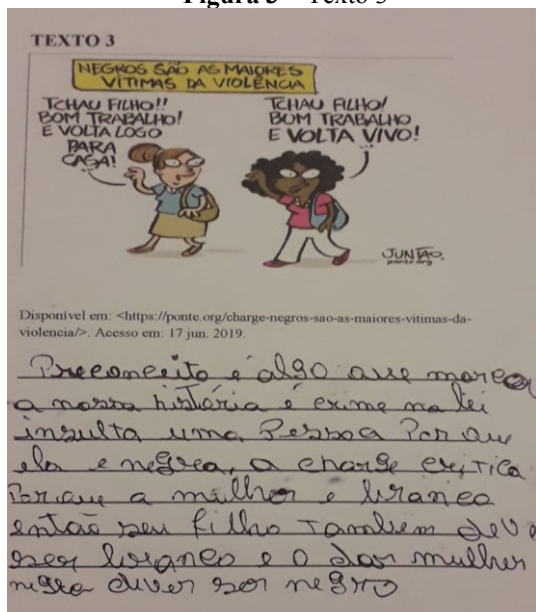 Figura 3 – Texto 3
TEXTO 3
NEGROS SÃO AS MAIORES
VÍTIMAS DA VIOLÊNCIA
TCHAU FILHO!!
BOM TRABALHO!
E VOLTA LOGO
PARA
CASA!
TCHAU FILHO!
BOM TRABALHO
E VOLTA VIVO!
JUNIÃO
ponte.org
Disponível em: <https://ponte.org/charge-negros-sao-as-maiores-vitimas-da-
violencia/>. Acesso em: 17 jun. 2019.
Preconceito é algo que marca
a nossa história é crime na lei
insulta uma Pessoa Por que
ela e negra, a charge critica
Por que a mulher e branca
então seu filho Tambem deve
ser branco e o dar mulher
negra diver ser negro